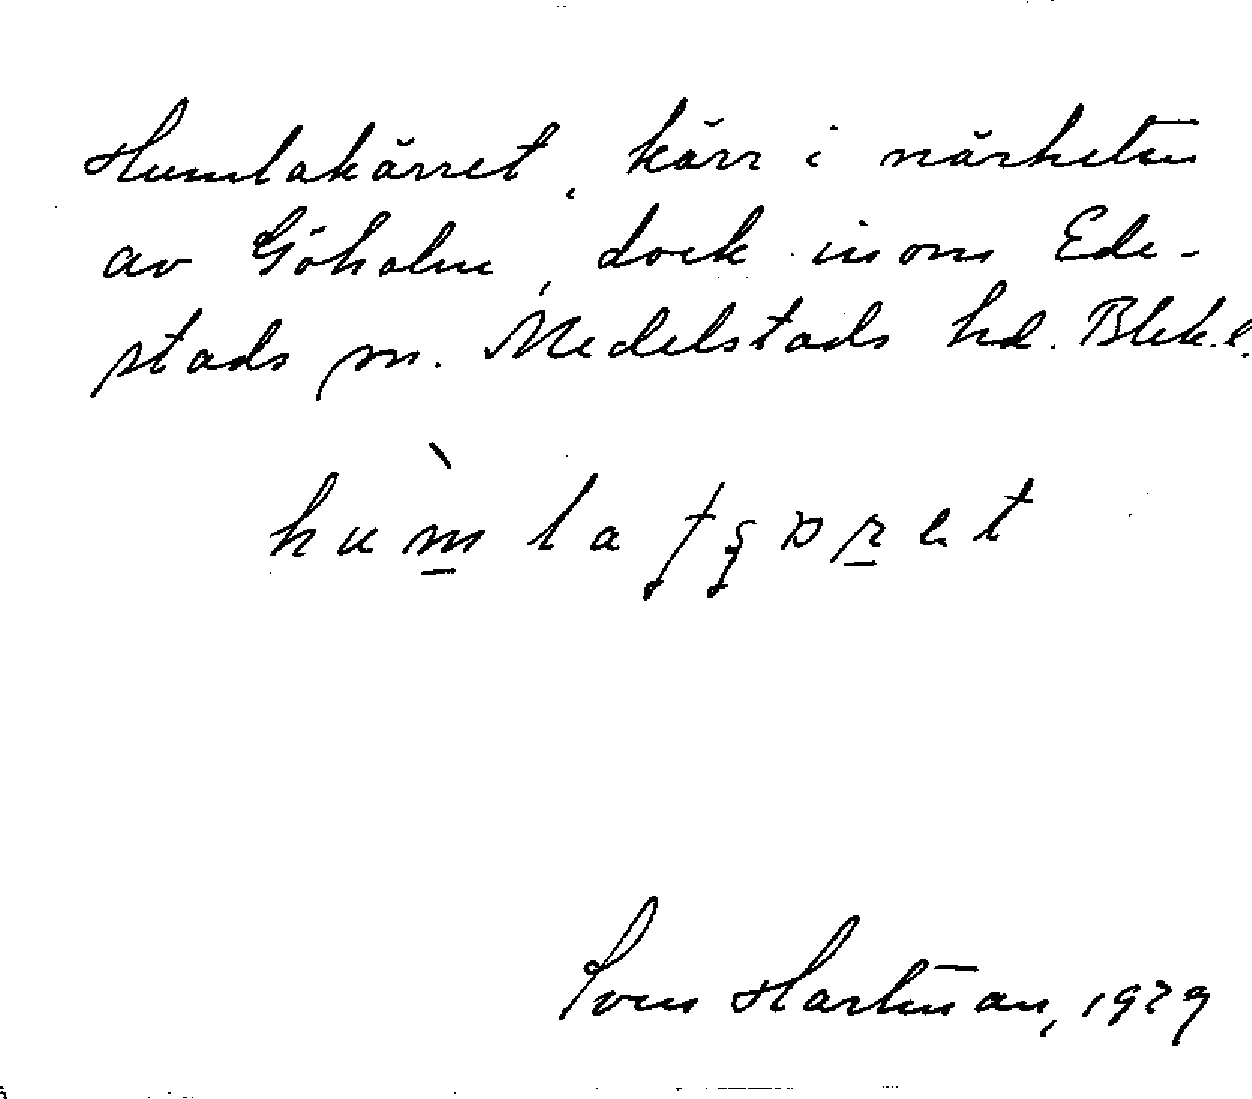 Humlakärret, kärr i närheten
av Göholm, dock inom Ede-
stads sn. Medelstads hd. Blek.l.
Sven Hartman, 1929